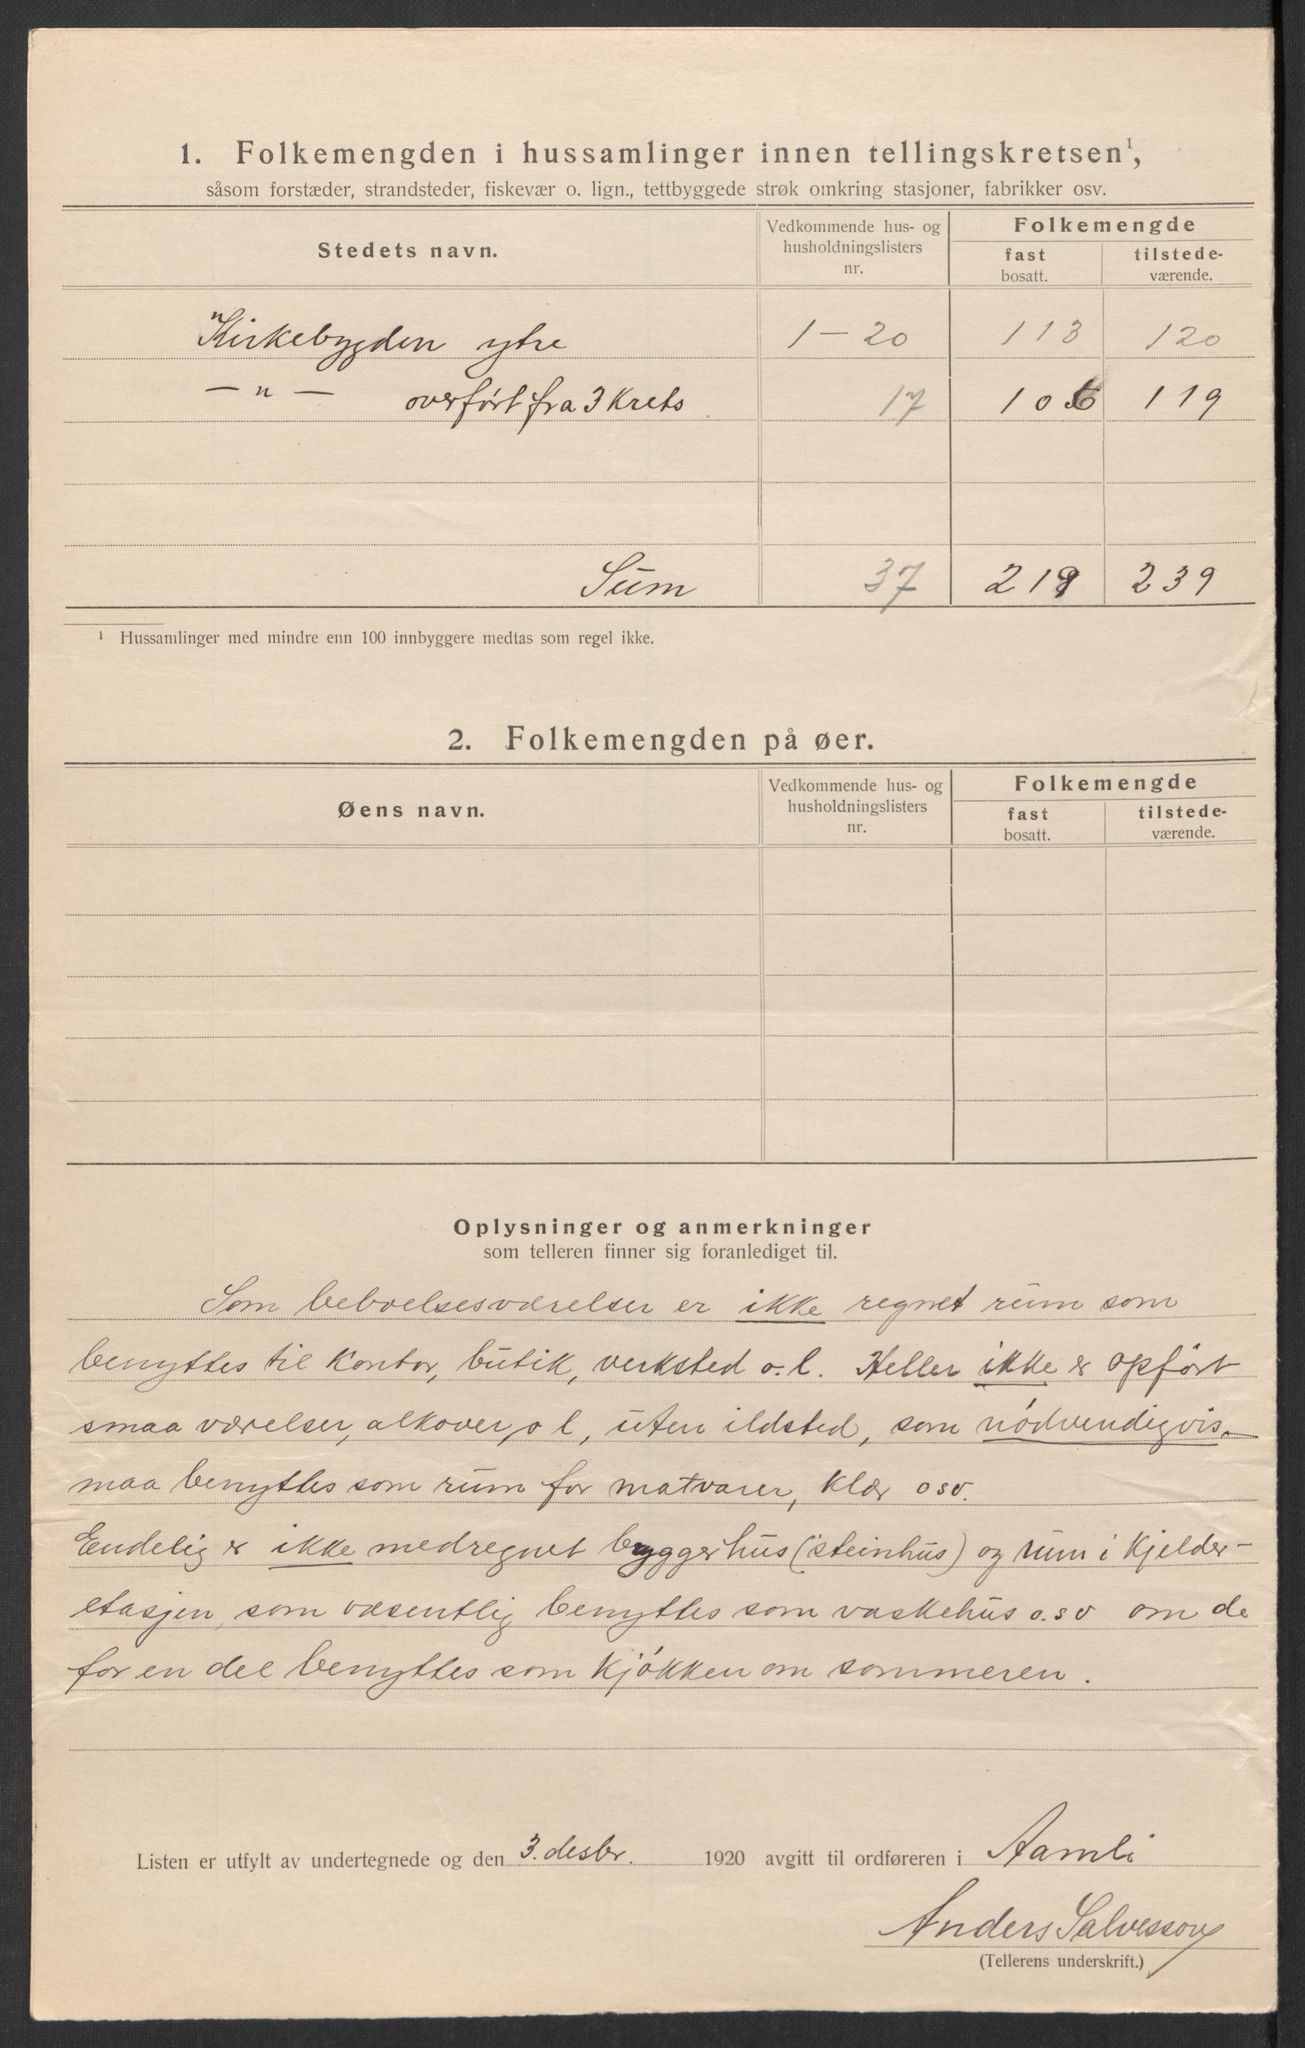 1. Folkemengden i hussamlinger innen tellingskretsen¹,
såsom forstæder, strandsteder, fiskevær o. lign., tettbyggede strøk omkring stasjoner, fabrikker osv.
Stedets navn.
Vedkommende hus- og
husholdningslisters
nr.
Folkemengde
fast
bosatt.
tilstede-
værende.
"Kirkebygden ytre 1-20 113 120
— " — overført fra 3 Krets 17 106 119
Sum 37 219 239
¹ Hussamlinger med mindre enn 100 innbyggere medtas som regel ikke.
2. Folkemengden på øer.
Øens navn.
Vedkommende hus- og
husholdningslisters
nr.
Folkemengde
fast
bosatt.
tilstede-
værende.
Oplysninger og anmerkninger
som telleren finner sig foranlediget til.
Som beboelsesværelser er ikke regnet rum som
benyttes til kontor, butik, verksted o.l. Heller ikke er opført
smaa værelser, alkover, o l, uten ildsted, som nødvendigvis
maa benyttes som rum for matvarer, klær osv.
Endelig er ikke medregnet byggerhus (steinhus) og rum i kjelder-
etasjen, som væsentlig benyttes som vaskehus o.s v om de
for en del benyttes som kjøkken om sommeren.
Listen er utfylt av undertegnede og den 3. desbr. 1920 avgitt til ordføreren i Aamli
Anders Salvesson
(Tellerens underskrift.)